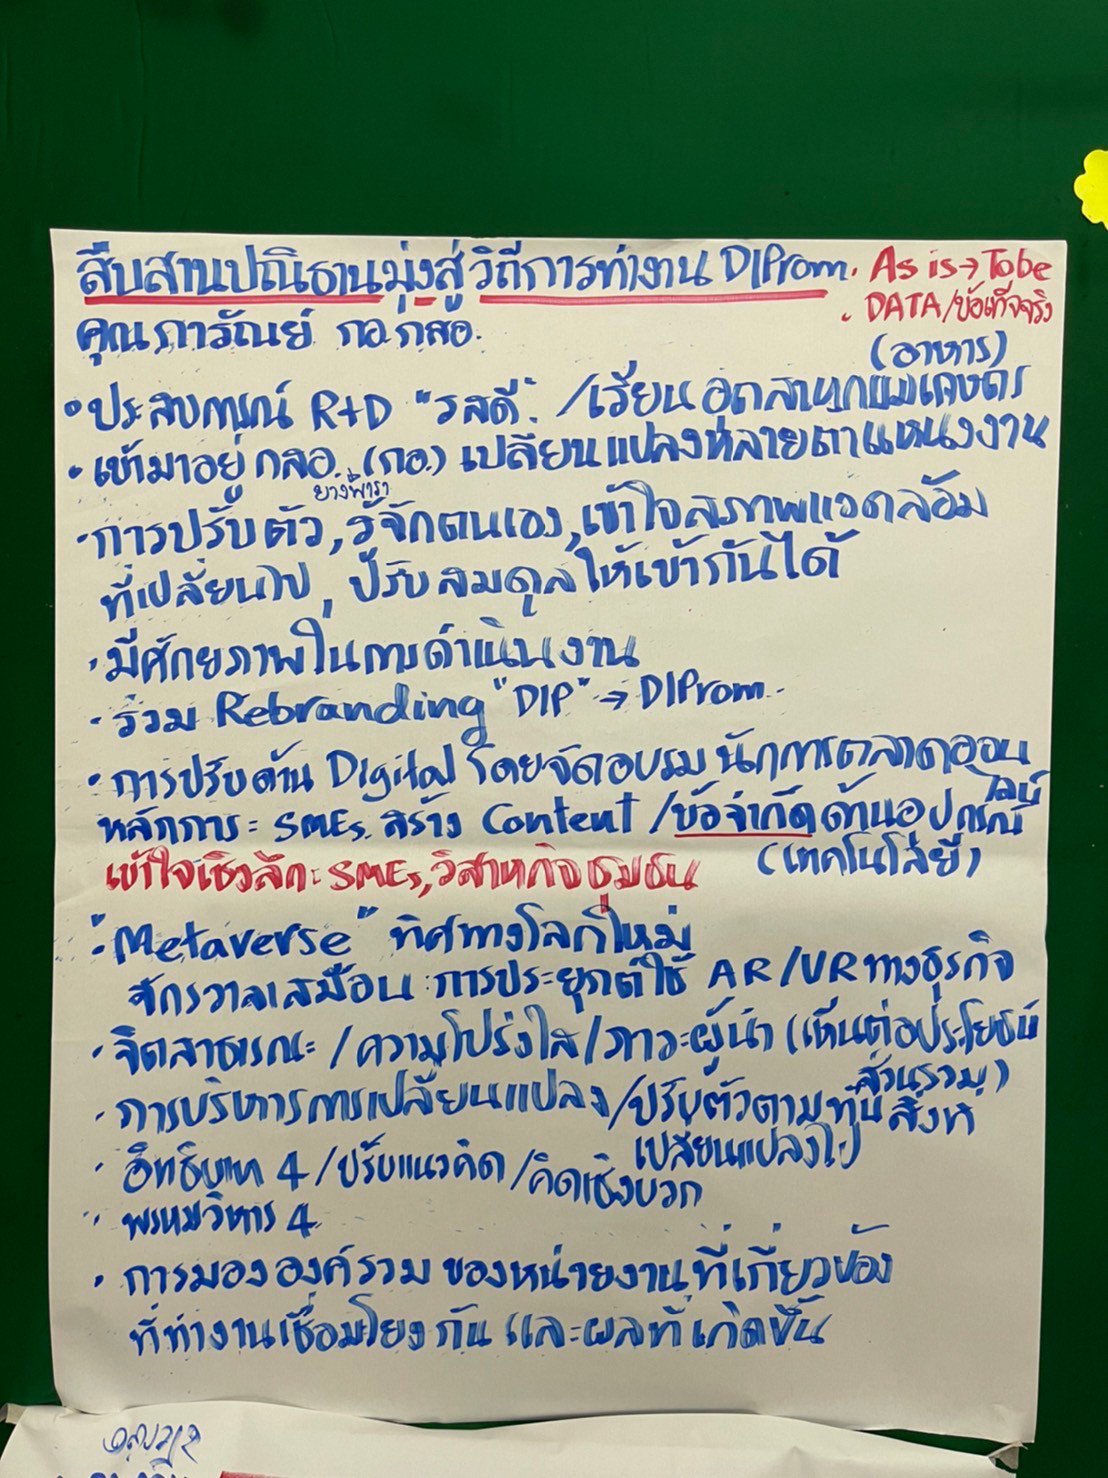 สืบสานปณิธานมุ่งสู่วิถีการทำงาน DIProm. As is → Tobe
. DATA/ข้อเท็จจริง
คุณภารัณย์ กอ.กสอ.
(อาหาร)
• ประสบการณ์ R+D "รสดี" /เรียนอุตสาหกรรมเกษตร
• เข้ามาอยู่ กสอ. (กอ.) เปลี่ยนแปลงหลายตำแหน่งงาน
ยางพารา
• การปรับตัว, รู้จักตนเอง, เข้าใจสภาพแวดล้อม
ที่เปลี่ยนไป, ปรับสมดุลให้เข้ากันได้
• มีศักยภาพในการดำเนินงาน
• ร่วม Rebranding "DIP" → DIProm
• การปรับด้าน Digital โดยจัดอบรม นักการตลาดออน
ไลน์
หลักการ: SMEs. สร้าง Content /ข้อจำกัดด้านอุปกรณ์
(เทคโนโลยี)
เข้าใจเชิงลึก: SMEs, วิสาหกิจชุมชน
• "Metaverse" ทิศทางโลกใหม่
จักรวาลเสมือน : การประยุกต์ใช้ AR/VR ทางธุรกิจ
• จิตสาธารณะ /ความโปร่งใส /ภาวะผู้นำ (เห็นต่อประโยชน์
ส่วนรวม)
• การบริหารการเปลี่ยนแปลง /ปรับตัวตามทันสิ่งที่
เปลี่ยนแปลงไป
• อิทธิบาท 4 /ปรับแนวคิด /คิดเชิงบวก
• พรหมวิหาร 4
• การมององค์รวม ของหน่วยงานที่เกี่ยวข้อง
ที่ทำงานเชื่อมโยงกัน และผลที่เกิดขึ้น